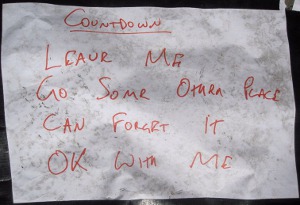 COUNTDOWN
LEAVE ME
GO SOME OTHER PLACE
CAN FORGET IT
OK WITH ME